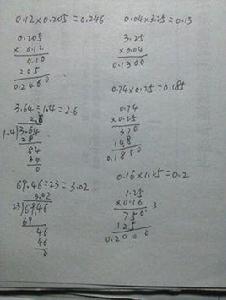 0.12×0.205=0.246
0.205
×0.12
205
0.2460
3.64÷1.4=2.6
2.6
1.4)3.64
28
84
84
0
69.46÷23=3.02
3.02
23)69.46
69
46
46
0
0.04×3.25=0.13
3.25
×0.04
0.1300
0.74×0.25=0.185
0.74
×0.25
370
148
0.1850
0.16×1.25=0.2
1.25
×0.16
750
125
0.2000